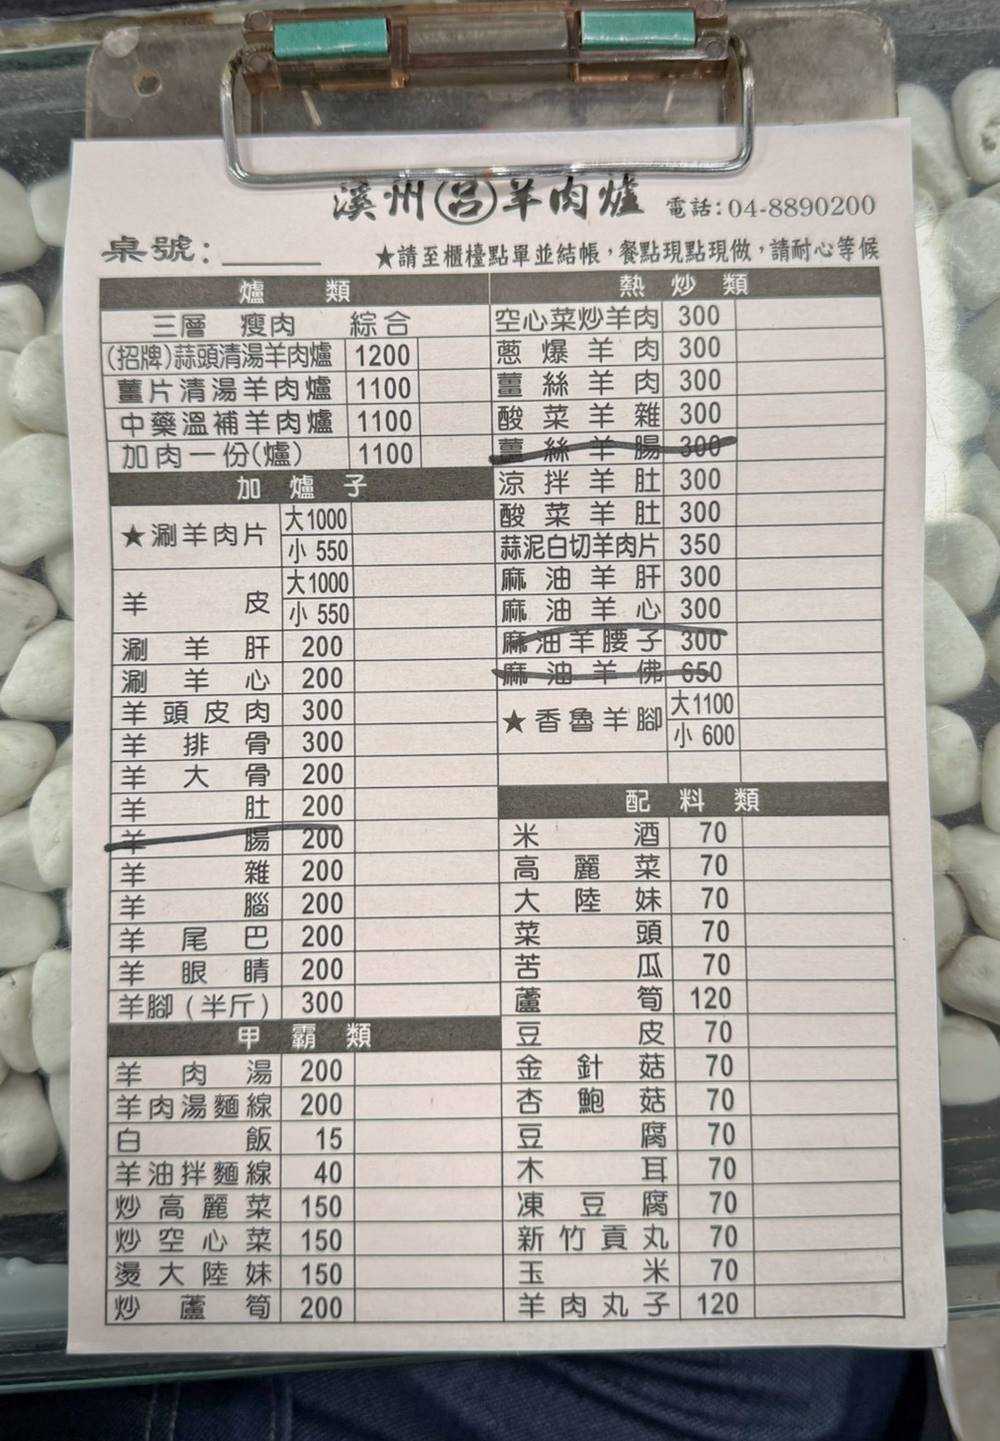 溪州呂羊肉爐 電話:04-8890200
桌號:
★請至櫃檯點單並結帳,餐點現點現做,請耐心等候
爐類
三層 瘦肉 綜合
(招牌)蒜頭清湯羊肉爐 1200
薑片清湯羊肉爐 1100
中藥溫補羊肉爐 1100
加肉一份(爐) 1100
加爐子
★涮羊肉片 大1000
小 550
羊皮 大1000
小 550
涮羊肝 200
涮羊心 200
羊頭皮肉 300
羊排骨 300
羊大骨 200
羊肚 200
羊腸 200
羊雜 200
羊腦 200
羊尾巴 200
羊眼睛 200
羊腳(半斤) 300
甲霸類
羊肉湯 200
羊肉湯麵線 200
白飯 15
羊油拌麵線 40
炒高麗菜 150
炒空心菜 150
燙大陸妹 150
炒蘆筍 200
熱炒類
空心菜炒羊肉 300
蔥爆羊肉 300
薑絲羊肉 300
酸菜羊雜 300
薑絲羊腸 300
涼拌羊肚 300
酸菜羊肚 300
蒜泥白切羊肉片 350
麻油羊肝 300
麻油羊心 300
麻油羊腰子 300
麻油羊佛 650
★香魯羊腳 大1100
小 600
配料類
米酒 70
高麗菜 70
大陸妹 70
菜頭 70
苦瓜 70
蘆筍 120
豆皮 70
金針菇 70
杏鮑菇 70
豆腐 70
木耳 70
凍豆腐 70
新竹貢丸 70
玉米 70
羊肉丸子 120